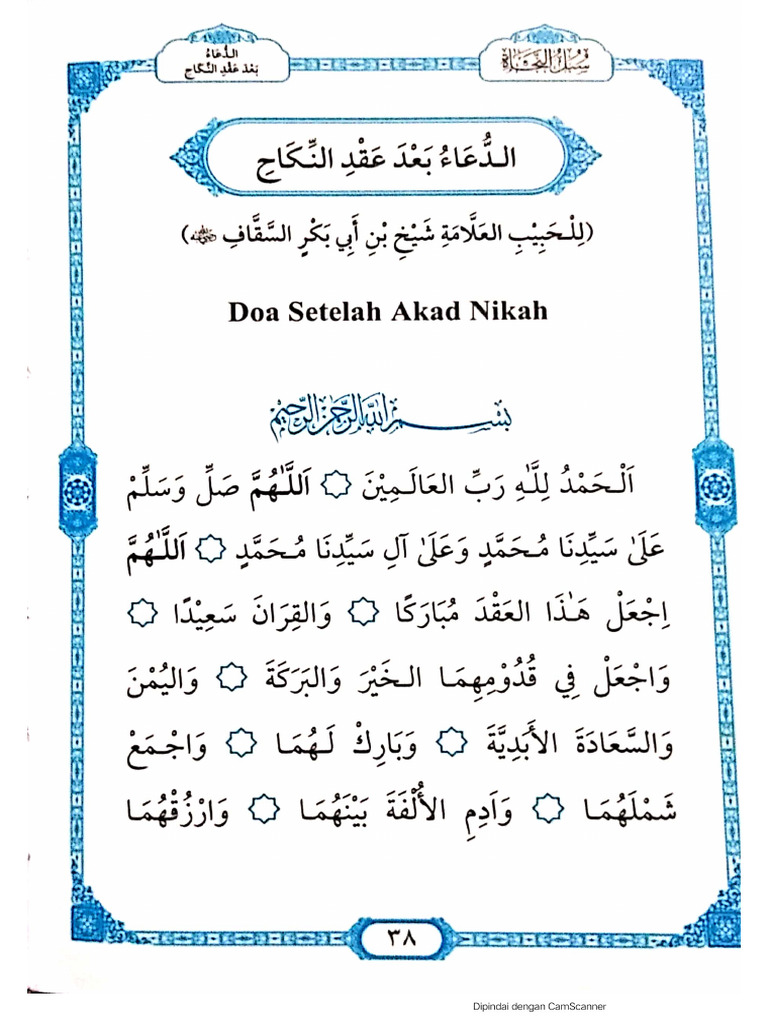 سُبُلُ النَّجَاةِ
الدُّعَاءُ
بَعْدَ عَقْدِ النِّكَاحِ
الدُّعَاءُ بَعْدَ عَقْدِ النِّكَاحِ
(لِلْحَبِيْبِ العَلَّامَةِ شَيْخِ بْنِ أَبِي بَكْرٍ السَّقَّافِ)
Doa Setelah Akad Nikah
بِسْمِ اللهِ الرَّحْمٰنِ الرَّحِيْمِ
اَلْحَمْدُ لِلَّٰهِ رَبِّ العَالَمِيْنَ ۞ اَللَّٰهُمَّ صَلِّ وَسَلِّمْ
عَلَىٰ سَيِّدِنَا مُحَمَّدٍ وَعَلَىٰ آلِ سَيِّدِنَا مُحَمَّدٍ ۞ اَللَّٰهُمَّ
اِجْعَلْ هَٰذَا العَقْدَ مُبَارَكًا ۞ وَالقِرَانَ سَعِيْدًا ۞
وَاجْعَلْ فِي قُدُوْمِهِمَا الخَيْرَ وَالبَرَكَةَ ۞ وَاليُمْنَ
وَالسَّعَادَةَ الأَبَدِيَّةَ ۞ وَبَارِكْ لَهُمَا ۞ وَاجْمَعْ
شَمْلَهُمَا ۞ وَاَدِمِ الأُلْفَةَ بَيْنَهُمَا ۞ وَارْزُقْهُمَا
٣٨
Dipindai dengan CamScanner